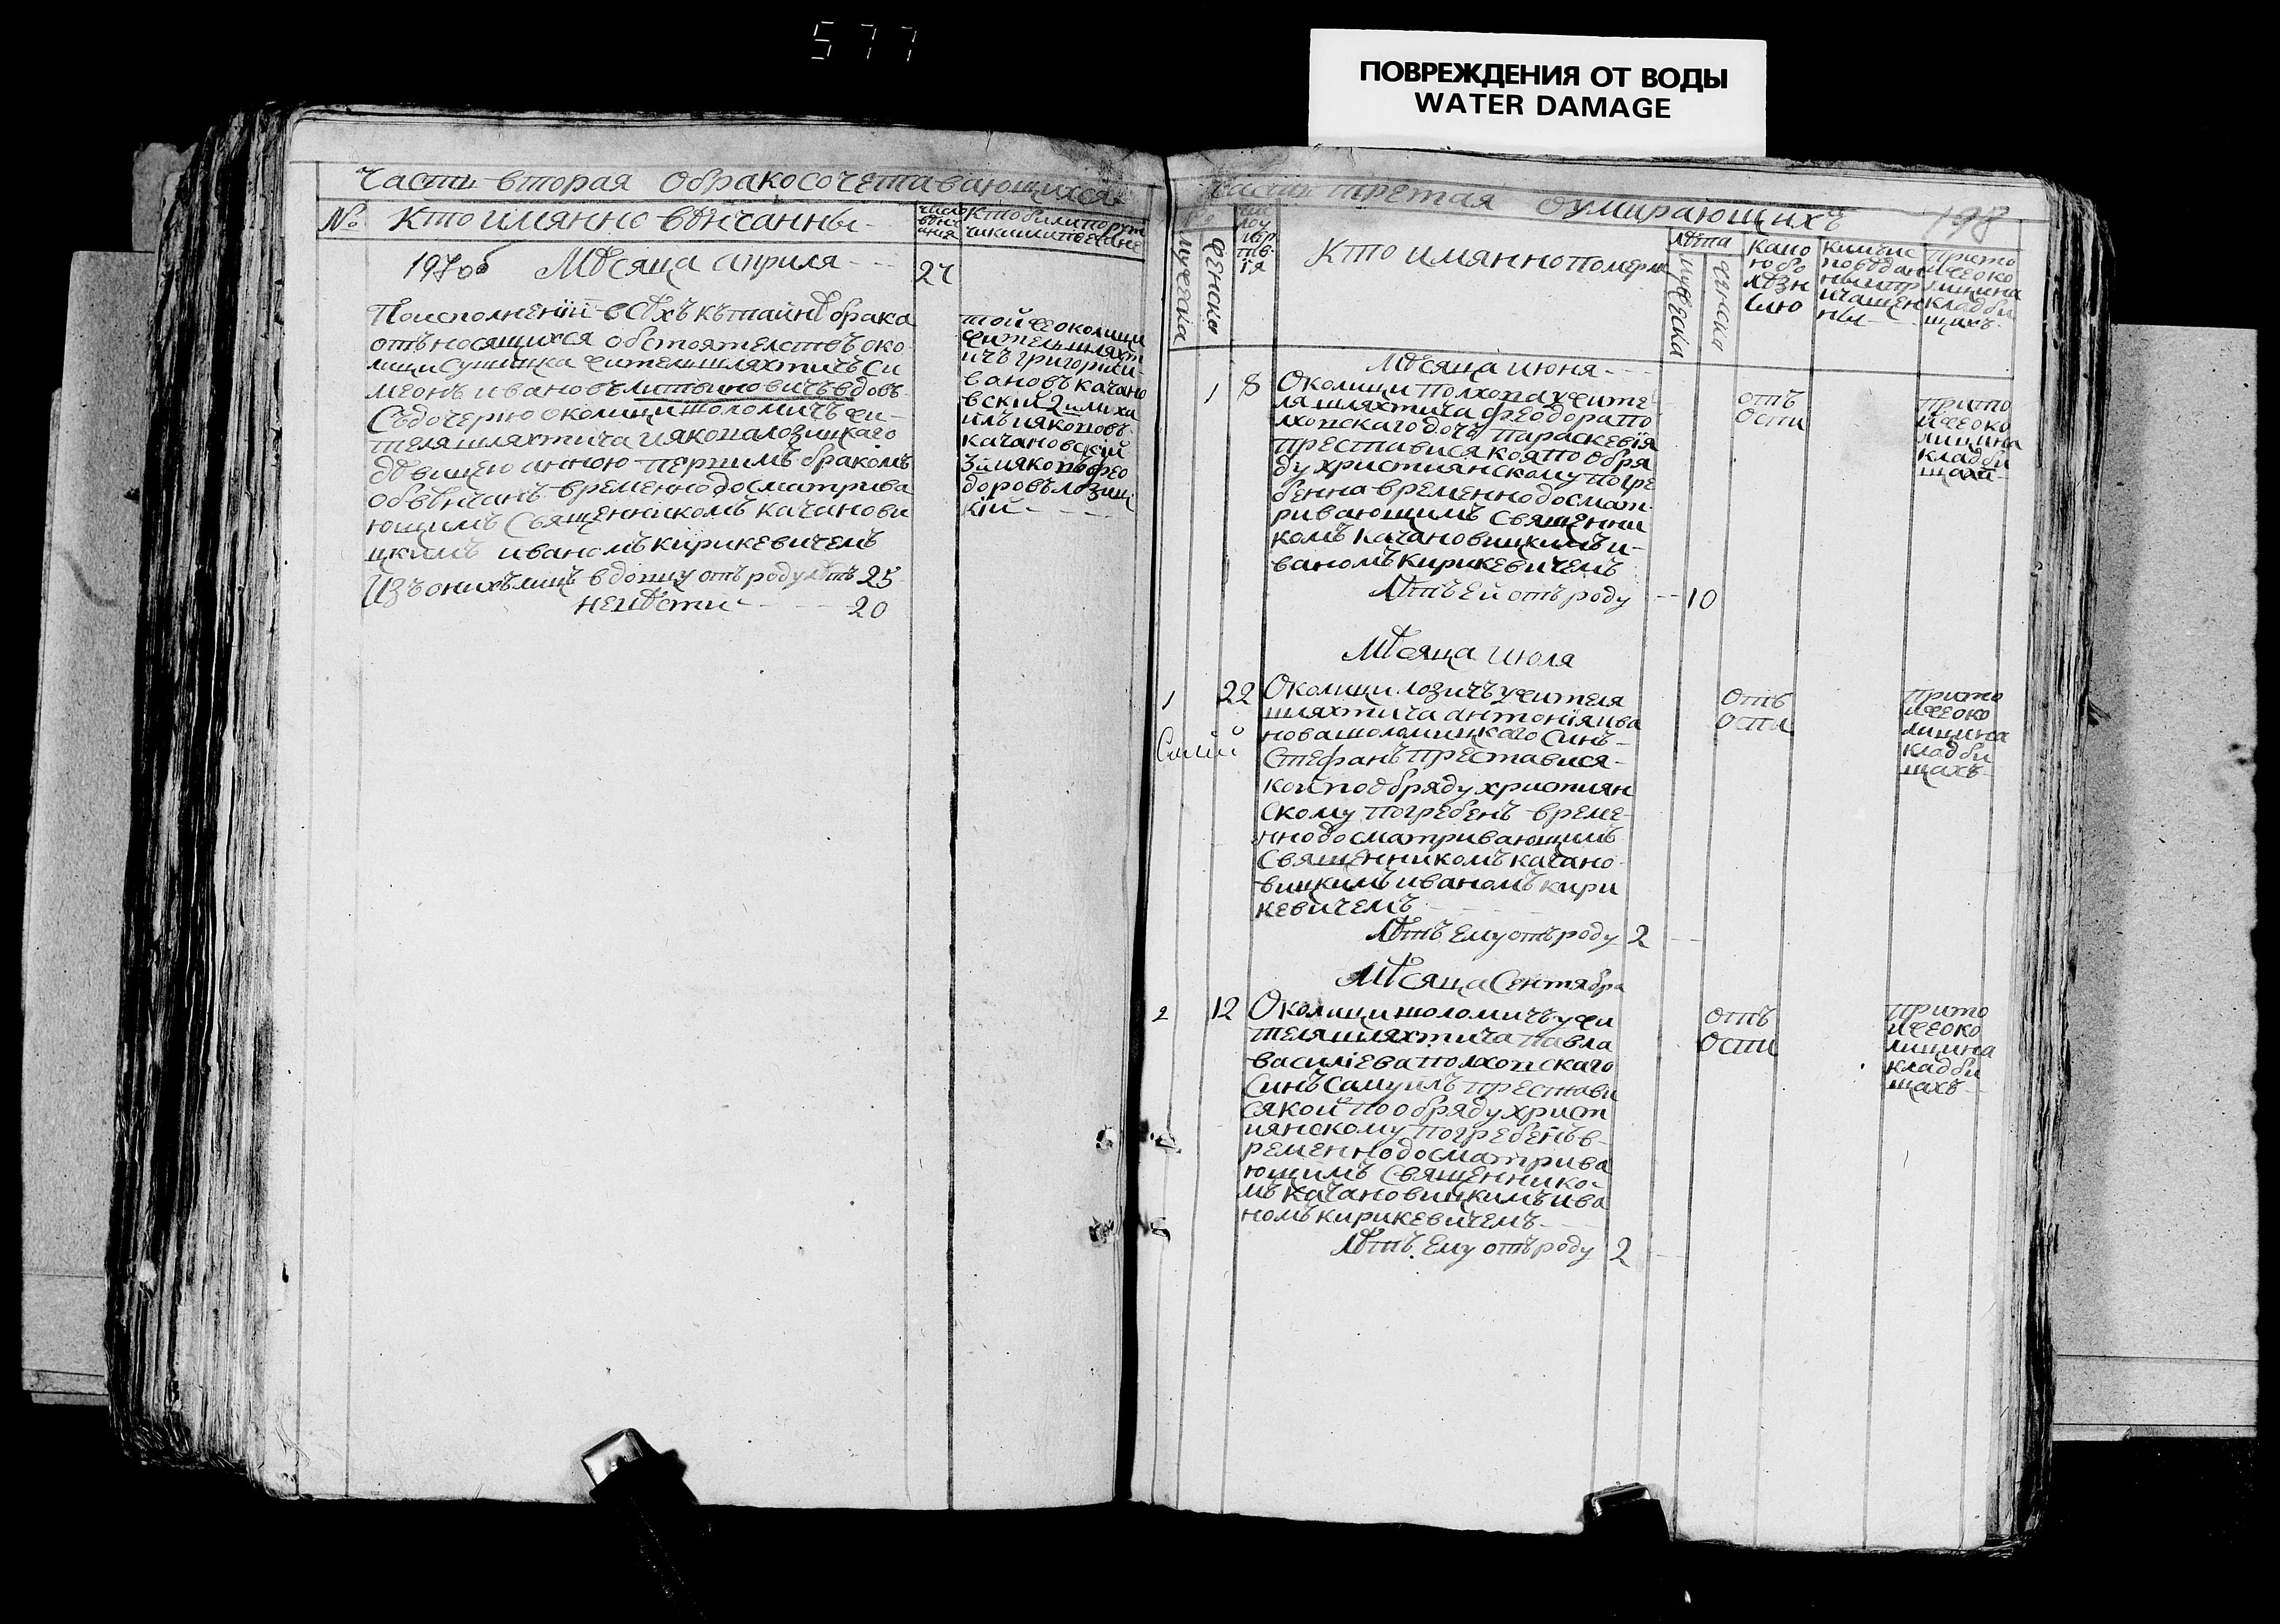 577
ПОВРЕЖДЕНИЯ ОТ ВОДЫ
WATER DAMAGE
Часть вторая обракосочетавающихся
№ Кто имянно вѣнчанны
число вѣнчания
Кто били поручики или поезане
Мѣсяца априля
24
По исполненїи всѣхъ къ тайнѣ брака
отъносящихся обстоятелствъ око
лици сушицка жителъ шляхтичъ си
меонъ ивановъ литвиновичъ вдовъ
Съ дочерю околици шоломичъ жи
теля шляхтича иякопа лозицкаго
дѣвицею анною первимъ бракомъ
обвѣнчанъ временно досматрива
ющимъ Священникомъ качанови
цкимъ иваномъ кирикевичемъ
Изъ онихъ лицъ вдовцу отъ роду лѣтъ 25
невѣсти 20
той же околици
жителъ шляхт
ичъ григорий и
вановъ качано
вский 2 и миха
илъ ияковъ
качановскїй
3й ияковъ фео
доровъ лозиц
кїй
Часть третая оумирающихъ
198
№
мужеска
женска
Кто имянно померли
лѣта
мужеска
женска
Какою болѣзнию
Мѣсяца июня
1 8 Околици полхопа жите
ля шляхтича феодора по
лхопскаго дочъ параскевїя
преставися коя по обря
ду християнскому погре
бенна временно досмат
ривающимъ Священни
комъ качановицкимъ и
ваномъ кирикевичемъ
Лѣтъ Ей отъ роду 10
отъ
оспи
при то
й же око
лици на
кладби
щахъ
Мѣсяца июля
1 22 Околици лозичъ жителя
шляхтича антонїя ива
нова шоломицкаго Синъ
Стефанъ преставися
кой по обряду християн
скому погребенъ време
нно досматривающимъ
Священникомъ качано
вицкимъ иваномъ кири
кевичемъ
Лѣтъ Ему отъ роду 2
отъ
оспи
при то
й же око
лици на
кладби
щахъ
Мѣсяца Сентября
2 12 Околици шоломичъ жи
теля шляхтича павла
василїева полхопскаго
Синъ Самуилъ престави
ся кой по обряду христ
иянскому погребенъ в
ременно досматрива
ющимъ Священнико
мъ качановицкимъ ива
номъ кирикевичемъ
Лѣтъ Ему отъ роду 2
отъ
оспи
при то
й же око
лици на
кладби
щахъ